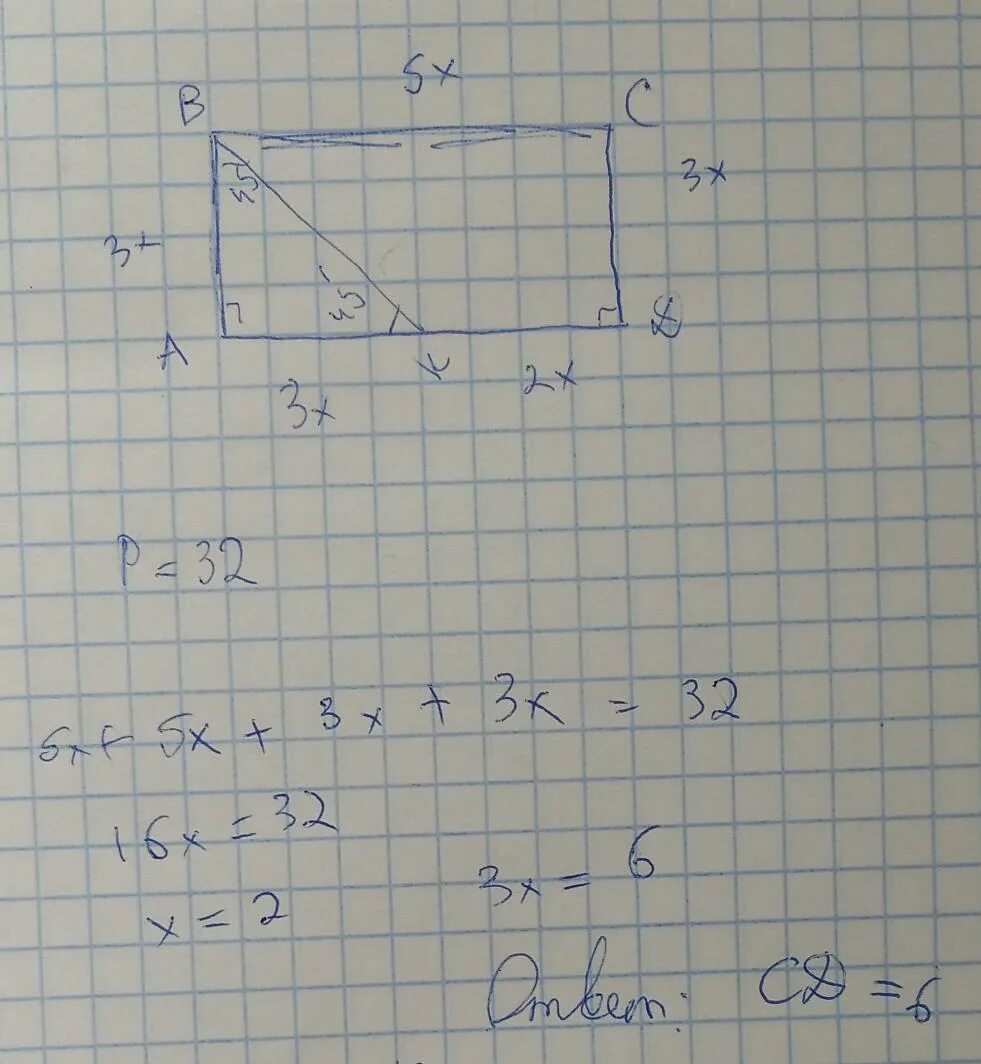 5x
B C
45
3x
3x
45
A K D
3x 2x
P = 32
5x + 5x + 3x + 3x = 32
16x = 32
3x = 6
x = 2
Ответ: CD = 6